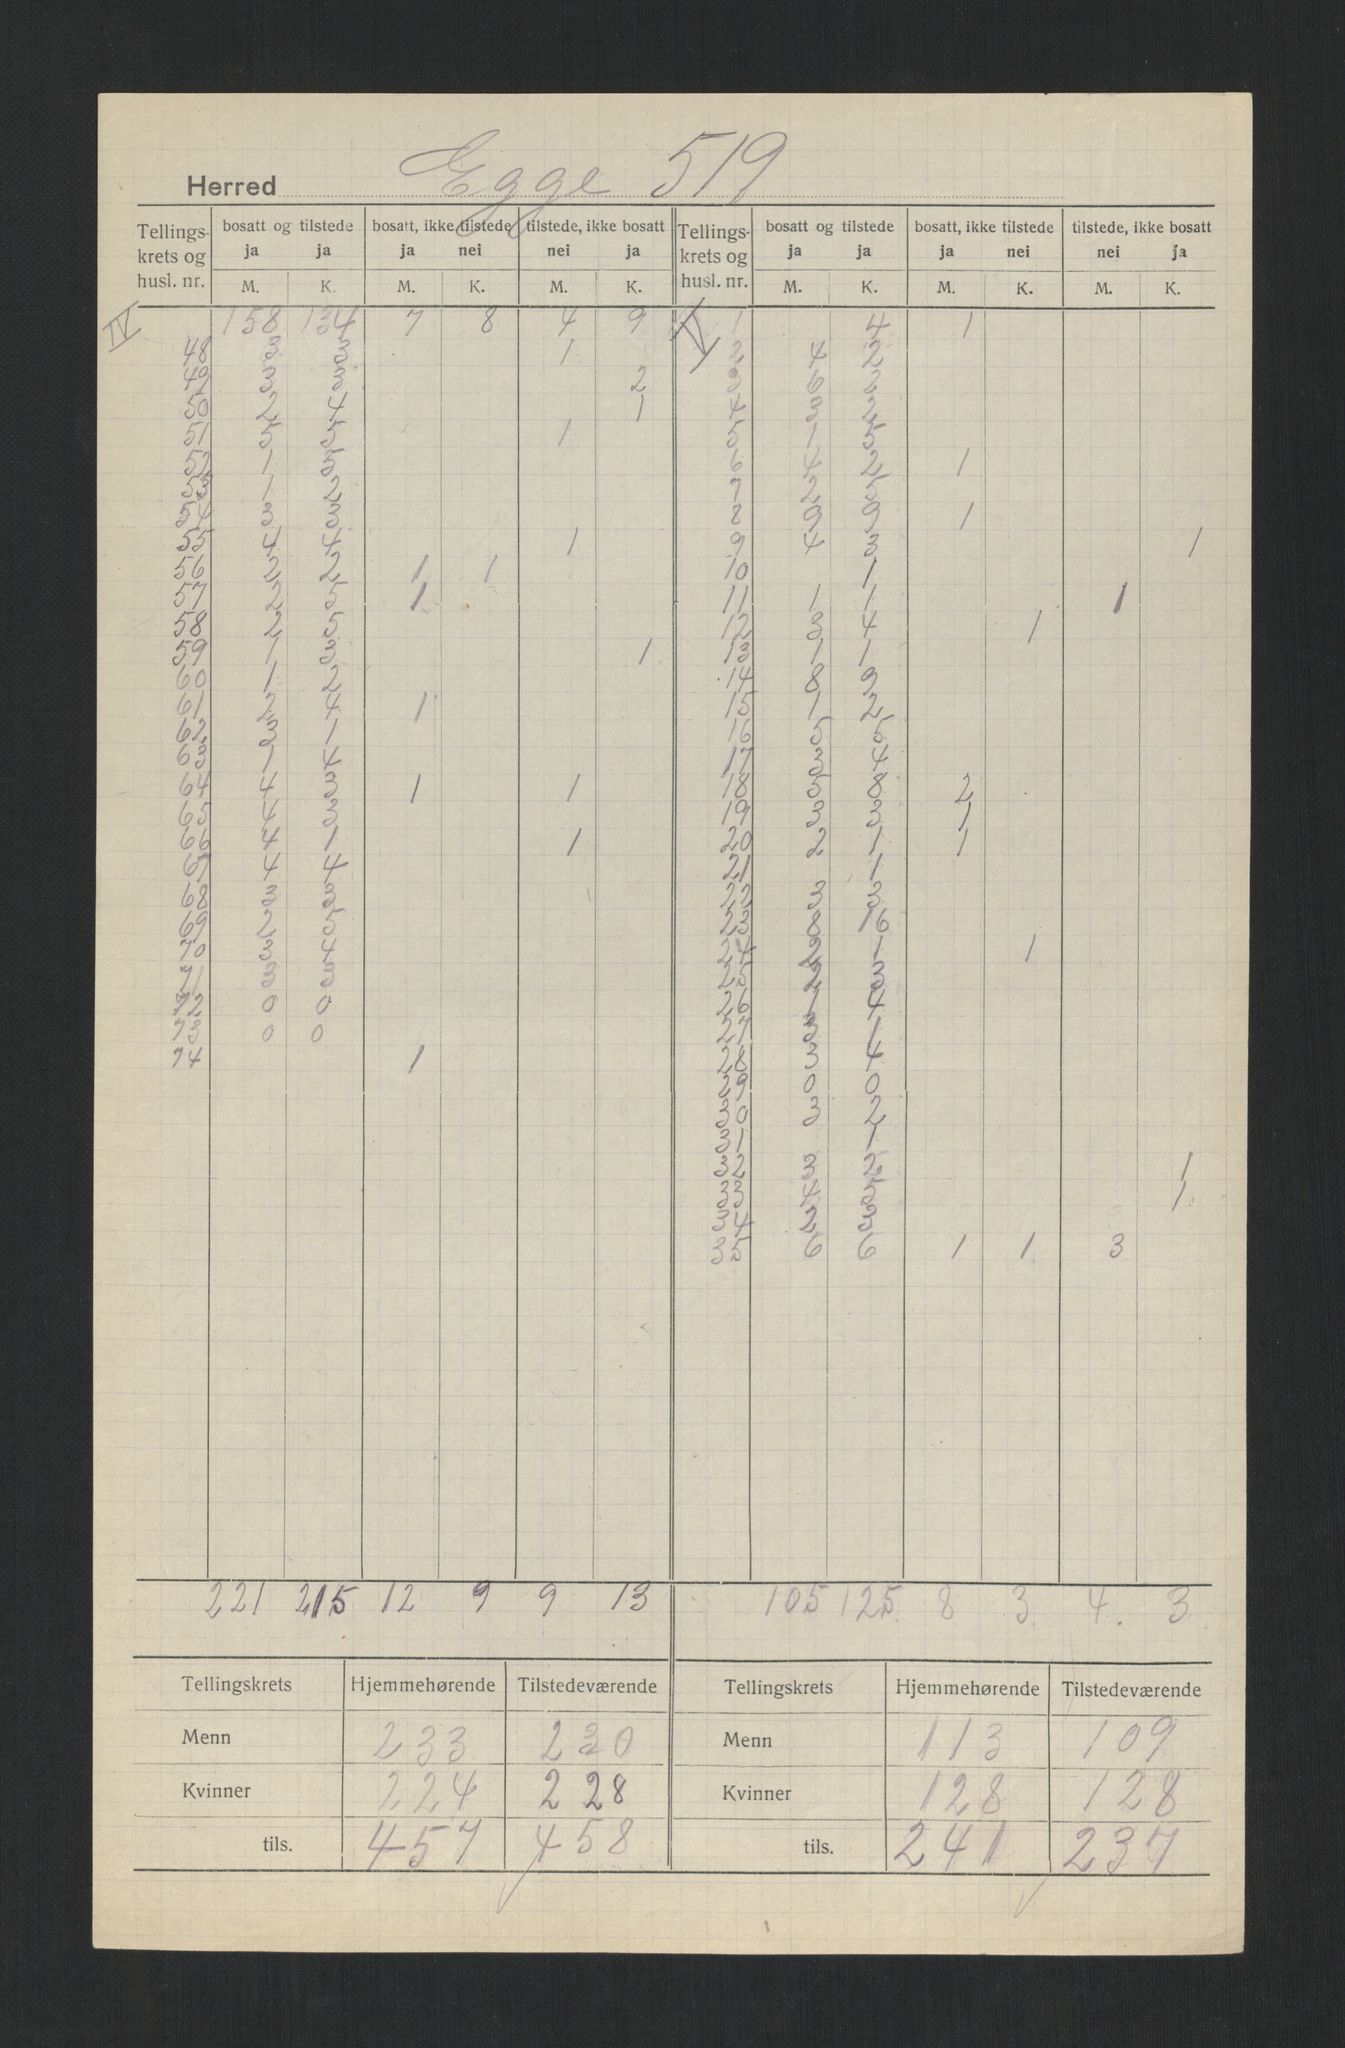 Herred Egge 519
Tellings- krets og husl. nr. | bosatt og tilstede ja ja | bosatt, ikke tilstede ja nei | tilstede, ikke bosatt nei ja | Tellings- krets og husl. nr. | bosatt og tilstede ja ja | bosatt, ikke tilstede ja nei | tilstede, ikke bosatt nei ja
M. K. M. K. M. K. M. K. M. K. M. K.
IV 158 134 7 8 4 9
48 3 3 1
49 3 3 2
50 2 4 1
51 5 5 1
52 1 5
53 1 2
54 3 3
55 4 4 1
56 2 2 1 1
57 2 5 1
58 2 5
59 1 3 1
60 1 2
61 2 4 1
62 3 1
63 1 4
64 4 3 1 1
65 4 3
66 4 1 1
67 4 4
68 3 3
69 2 5
70 3 4
71 3 3
72 0 0
73 0 0
74 1
221 215 12 9 9 13
V 1 4 1
2 4 2
3 6 2
4 3 2
5 1 5
6 4 2 1
7 2 5
8 2 2 1
9 4 3 1
10 1
11 1 1 1
12 3 4 1
13 1 1
14 8 9
15 1 2
16 5 5
17 3 4
18 5 8 2
19 3 3 1
20 2 1 1
21 1
22 3 3
23 8 16
24 2 1 1
25 2 3
26 1 4
27 3 1
28 3 4
29 0 0
30 3 2
31 1
32 3 2 1
33 4 5 1
34 2 3
35 6 6 1 1 3
105 125 8 3 4 3
Tellingskrets Hjemmehørende Tilstedeværende
Menn 233 230
Kvinner 224 228
tils. 457 458
Tellingskrets Hjemmehørende Tilstedeværende
Menn 113 109
Kvinner 128 128
tils. 241 237